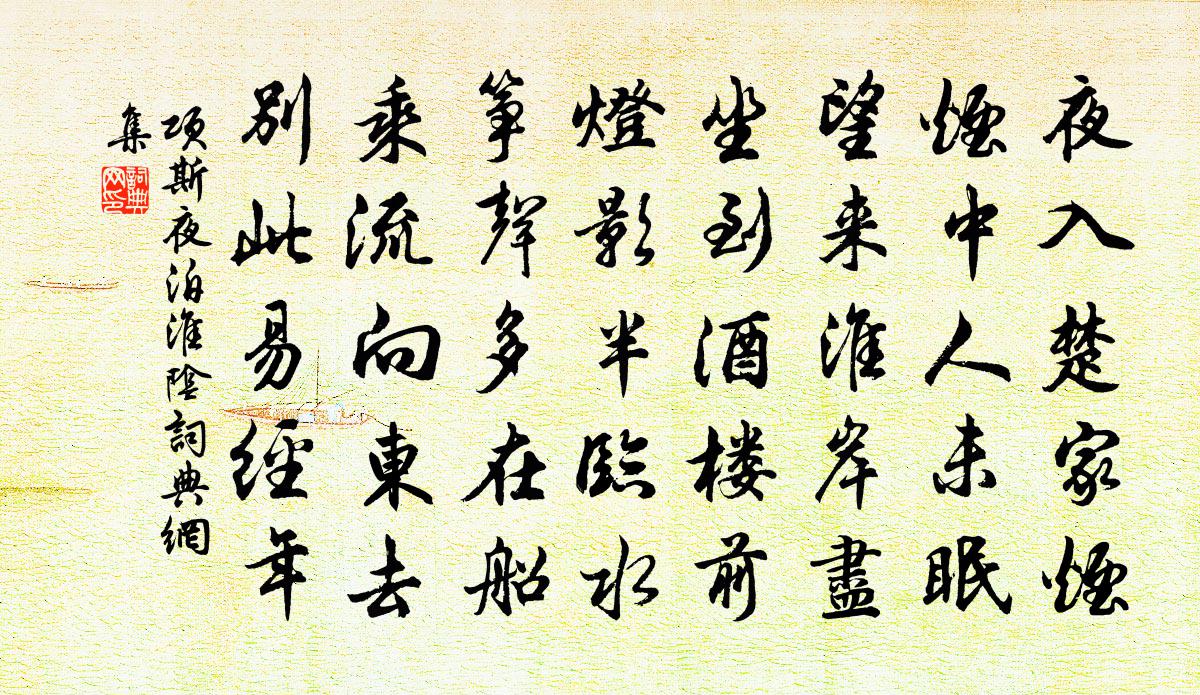 夜入楚家煙
煙中人未眠
望来淮岸盡
坐到酒楼前
燈影半臨水
箏聲多在船
乘流向東去
別此易經年
項斯夜泊淮陰詞典網
集
詞典
网印